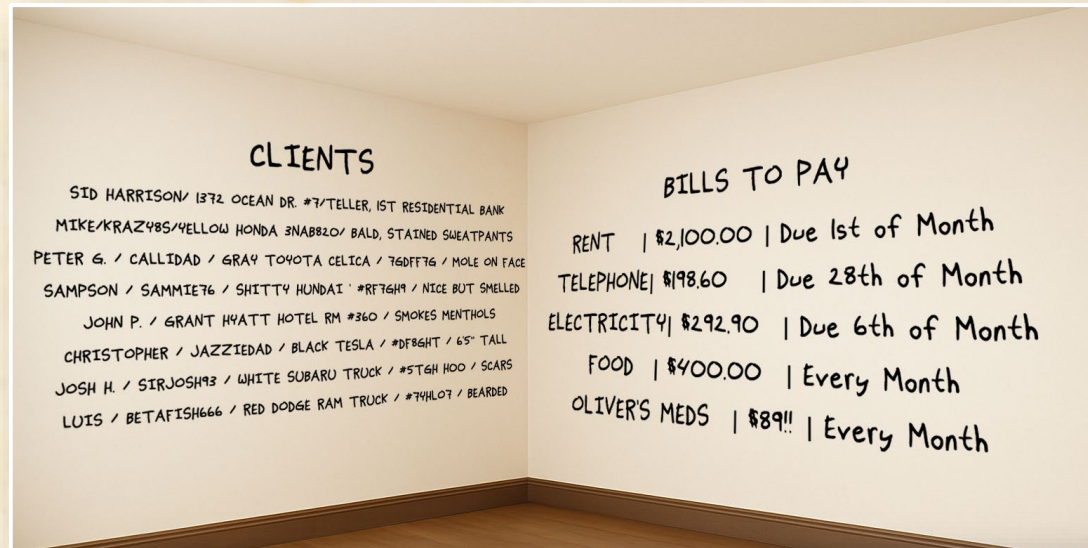 CLIENTS
SID HARRISON/ 1372 OCEAN DR. #7/TELLER, 1ST RESIDENTIAL BANK
MIKE/KRAZY8S/YELLOW HONDA 3NAB820/ BALD, STAINED SWEATPANTS
PETER G. / CALLIDAD / GRAY TOYOTA CELICA / 7GDFF7G / MOLE ON FACE
SAMPSON / SAMMIE76 / SHITTY HUNDAI ' #RF7GH9 / NICE BUT SMELLED
JOHN P. / GRANT HYATT HOTEL RM #360 / SMOKES MENTHOLS
CHRISTOPHER / JAZZIEDAD / BLACK TESLA / #DF8GHT / 6'5" TALL
JOSH H. / SIRJOSH93 / WHITE SUBARU TRUCK / #5TGH HOO / SCARS
LUIS / BETAFISH666 / RED DODGE RAM TRUCK / #74HLO7 / BEARDED
BILLS TO PAY
RENT | $2,100.00 | Due 1st of Month
TELEPHONE| $198.60 | Due 28th of Month
ELECTRICITY| $292.90 | Due 6th of Month
FOOD | $400.00 | Every Month
OLIVER'S MEDS | $89!! | Every Month